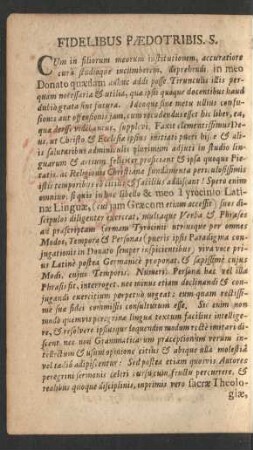 FIDELIBUS PÆDOTRIBIS. S.
CUm in filiorum meorum institutionem, accuratiore
cura studioque incumberem, deprehendi in meo
Donato quædam adhuc addi posse Tirunculis istis per-
quam necessaria & utilia, quo ipsis quoque docentibus haud
dubiò grata sint futura. Idcirco sine metu ullius confu-
sionis aut offensionis jam, cum recudendus esset hic liber, ea,
quæ deesse videbantur, supplevi. Faxit clementissimus De-
us, ut Christo & Ecclesiæ ipsius initiati pueri his & aliis
salutaribus adminiculis plurimum adjuti in studio lin-
guarum & artium feliciter proficiant & ipsa quoque Pie-
tatis ac Religionis Christianæ fundamenta periculosissimis
istis temporibus eò citiùs & faciliùs addiscant! Spero enim
omnino, si quis in hoc libello & meo Tyrocinio Lati-
næ Linguæ, (cui jam Græcum etiam accessit) suos di-
scipulos diligenter exerceat, multaque Verba & Phrases
ad præscriptam formam Tyrocinii utriusque per omnes
Modos, Tempora & Personas pueris ipsis Paradigma con-
jugationis in Donato semper inspicientibus, viva voce prius
Latinè postea Germanicè proponat, & sæpissimè cujus
Modi, cujus Temporis, Numeri, Personæ hæc vel illa
Phrasis sit, interroget, nec minus etiam declinandi & con-
jugandi exercitium perpetuò urgeat; eum quam rectissi-
mè suæ fidei commissis consultum esse. Sic enim non
modò quemvis peregrinæ linguæ textum faciliùs intellige-
re, & resolvere ipsumque loquendi modum rectè imitari di-
scent, nec non Grammaticarum præceptionum verum in-
tellectum & usum opinione citiùs & absque ulla molestia
vel tædio adipiscentur: Sed postea etiam quosvis Autores
peregrini sermonis celeri cursu cum fructu percurrere, &
realibus quoque disciplinis, imprimis verò sacræ Theolo-
giæ,